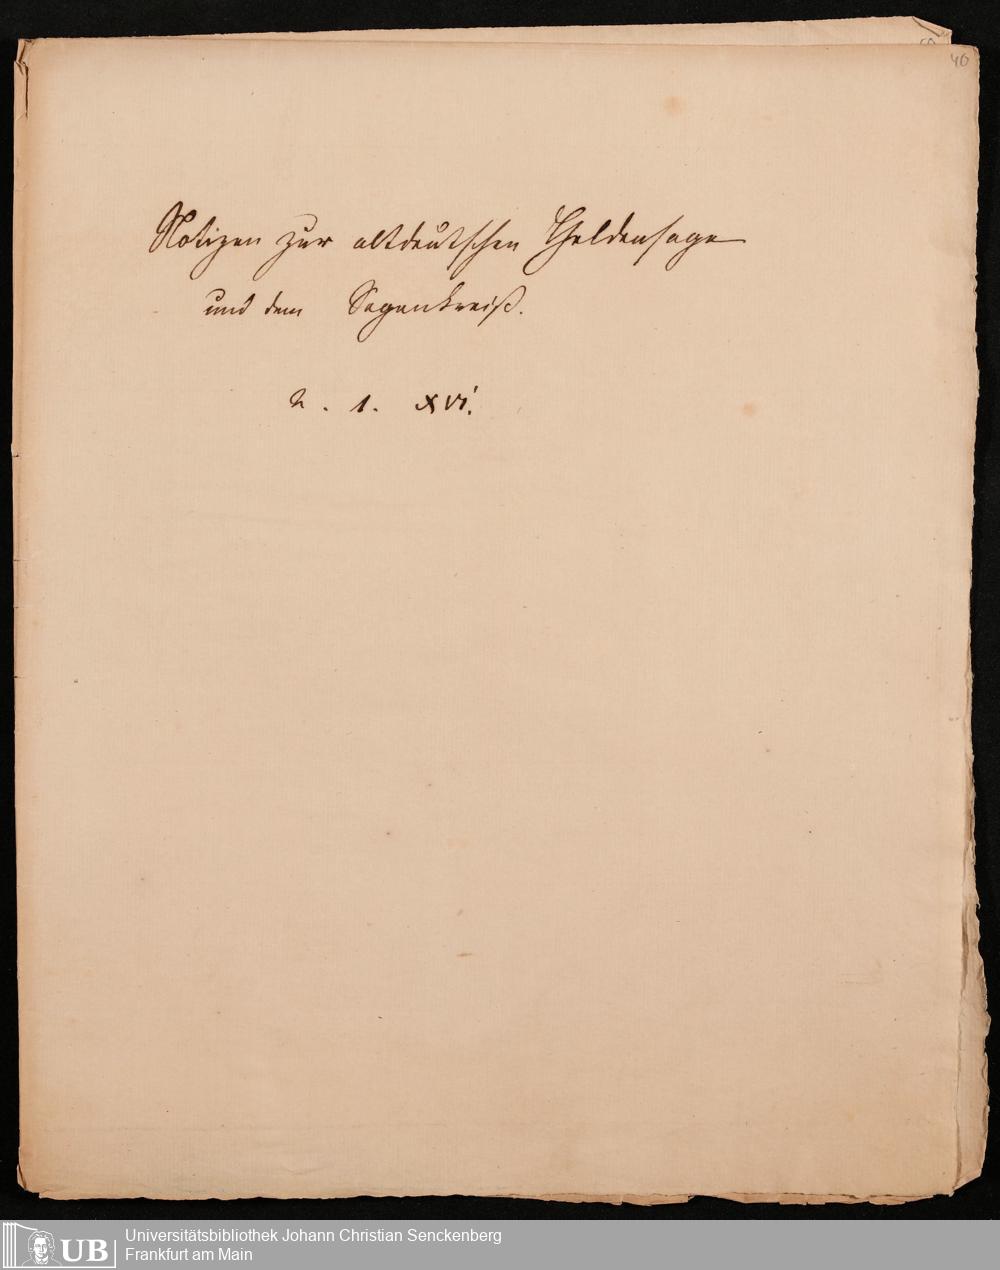 40
Notizen zur altdeutschen Heldensage
und dem Sagenkreiß.
2. 1. XVI.
UB
Universitätsbibliothek Johann Christian Senckenberg
Frankfurt am Main